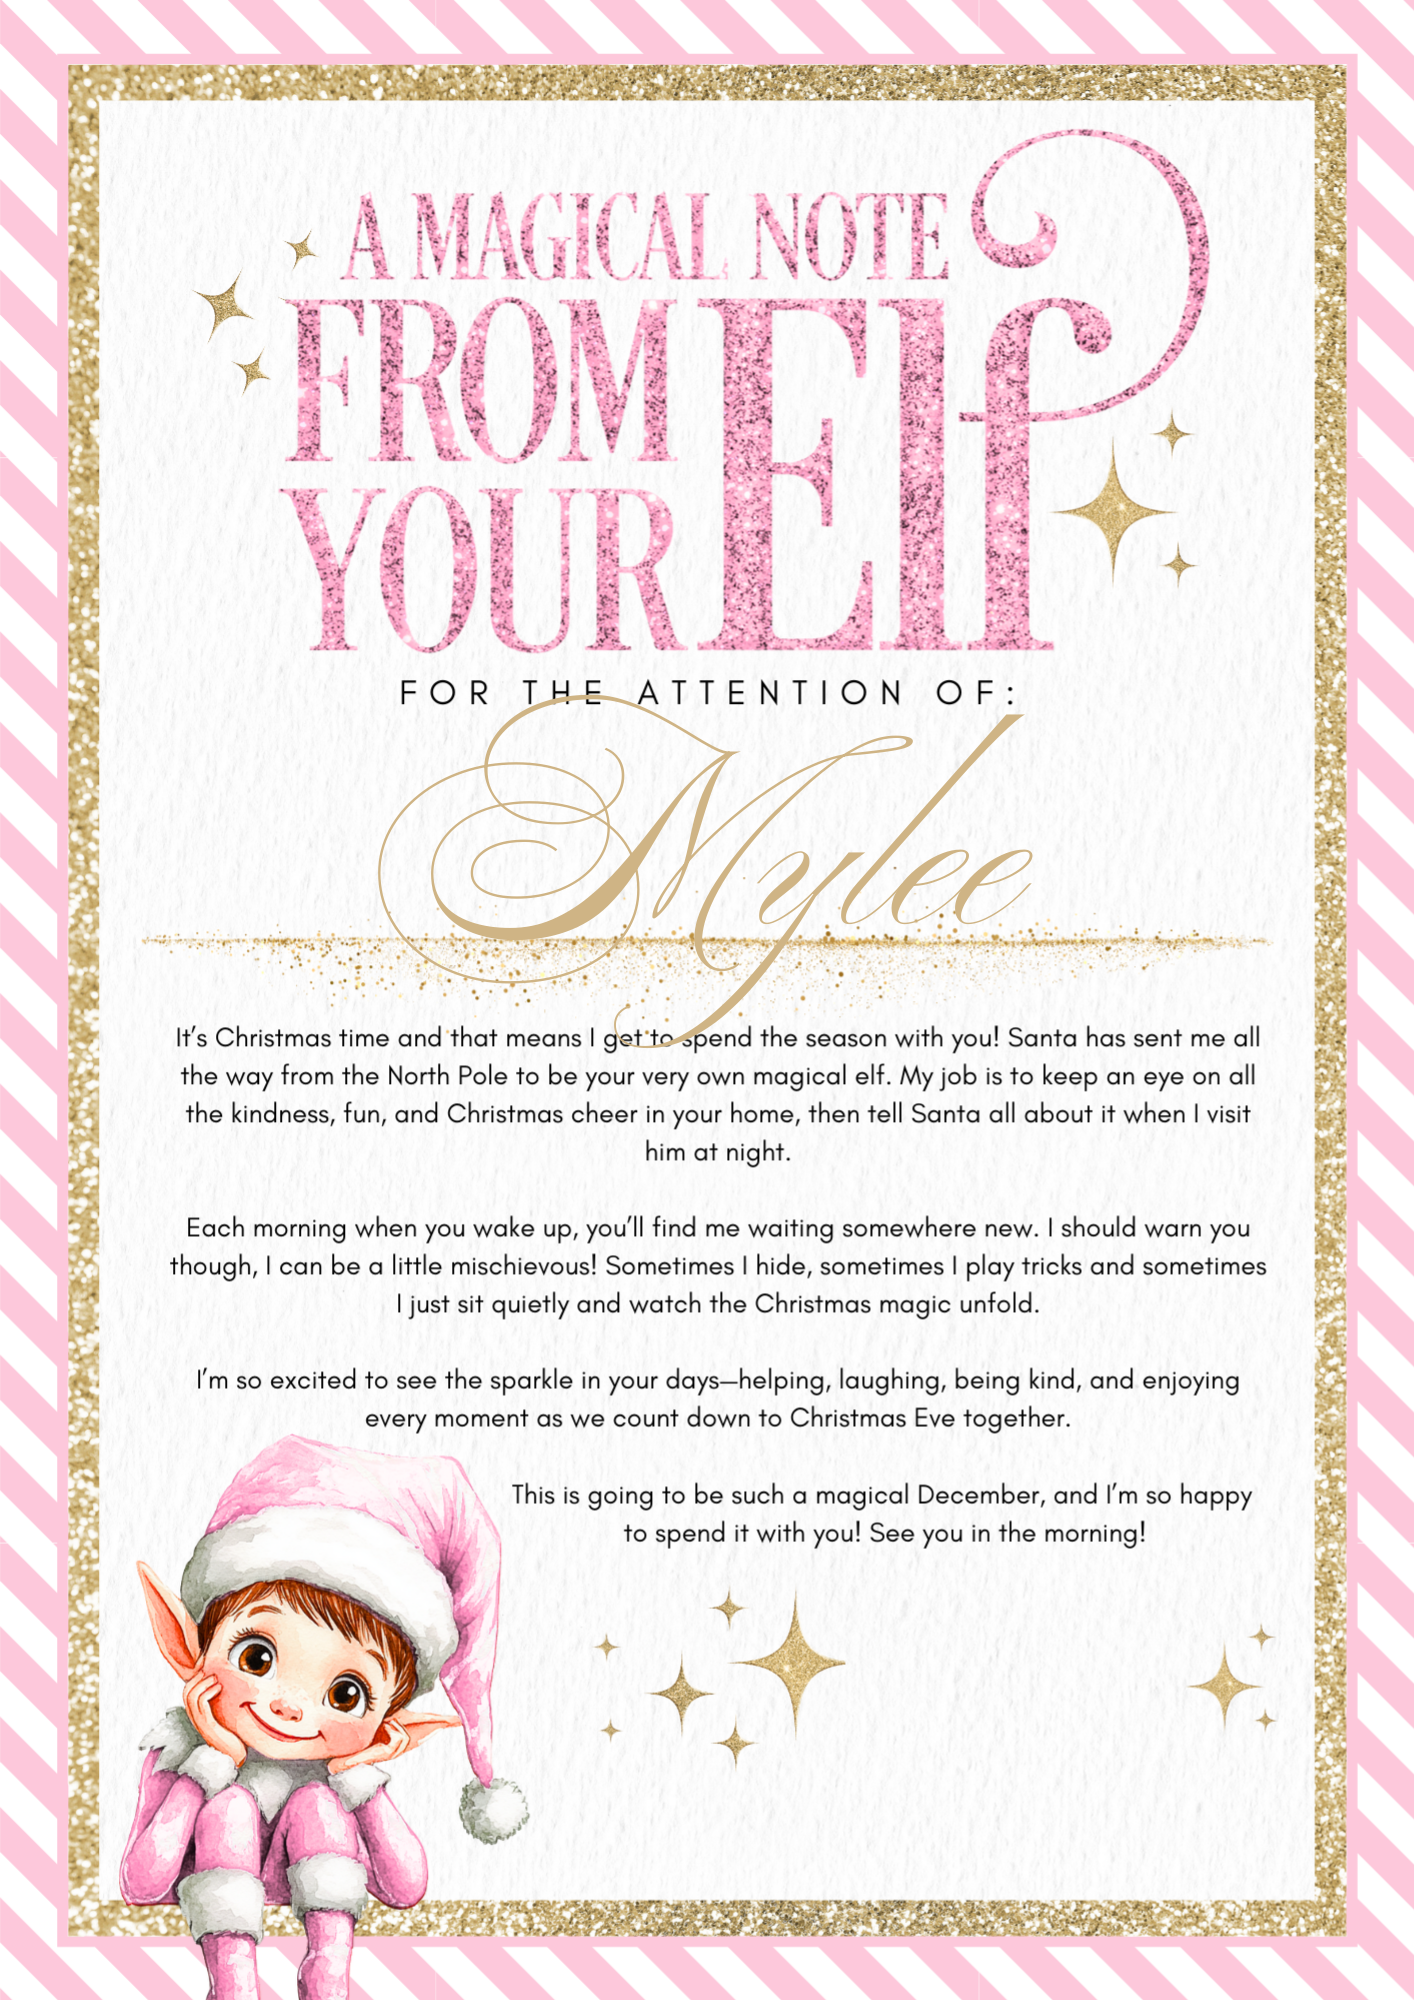 A MAGICAL NOTE
FROM
YOUR Elf
FOR THE ATTENTION OF:
Mylee
It's Christmas time and that means I get to spend the season with you! Santa has sent me all
the way from the North Pole to be your very own magical elf. My job is to keep an eye on all
the kindness, fun, and Christmas cheer in your home, then tell Santa all about it when I visit
him at night.
Each morning when you wake up, you'll find me waiting somewhere new. I should warn you
though, I can be a little mischievous! Sometimes I hide, sometimes I play tricks and sometimes
I just sit quietly and watch the Christmas magic unfold.
I'm so excited to see the sparkle in your days—helping, laughing, being kind, and enjoying
every moment as we count down to Christmas Eve together.
This is going to be such a magical December, and I'm so happy
to spend it with you! See you in the morning!